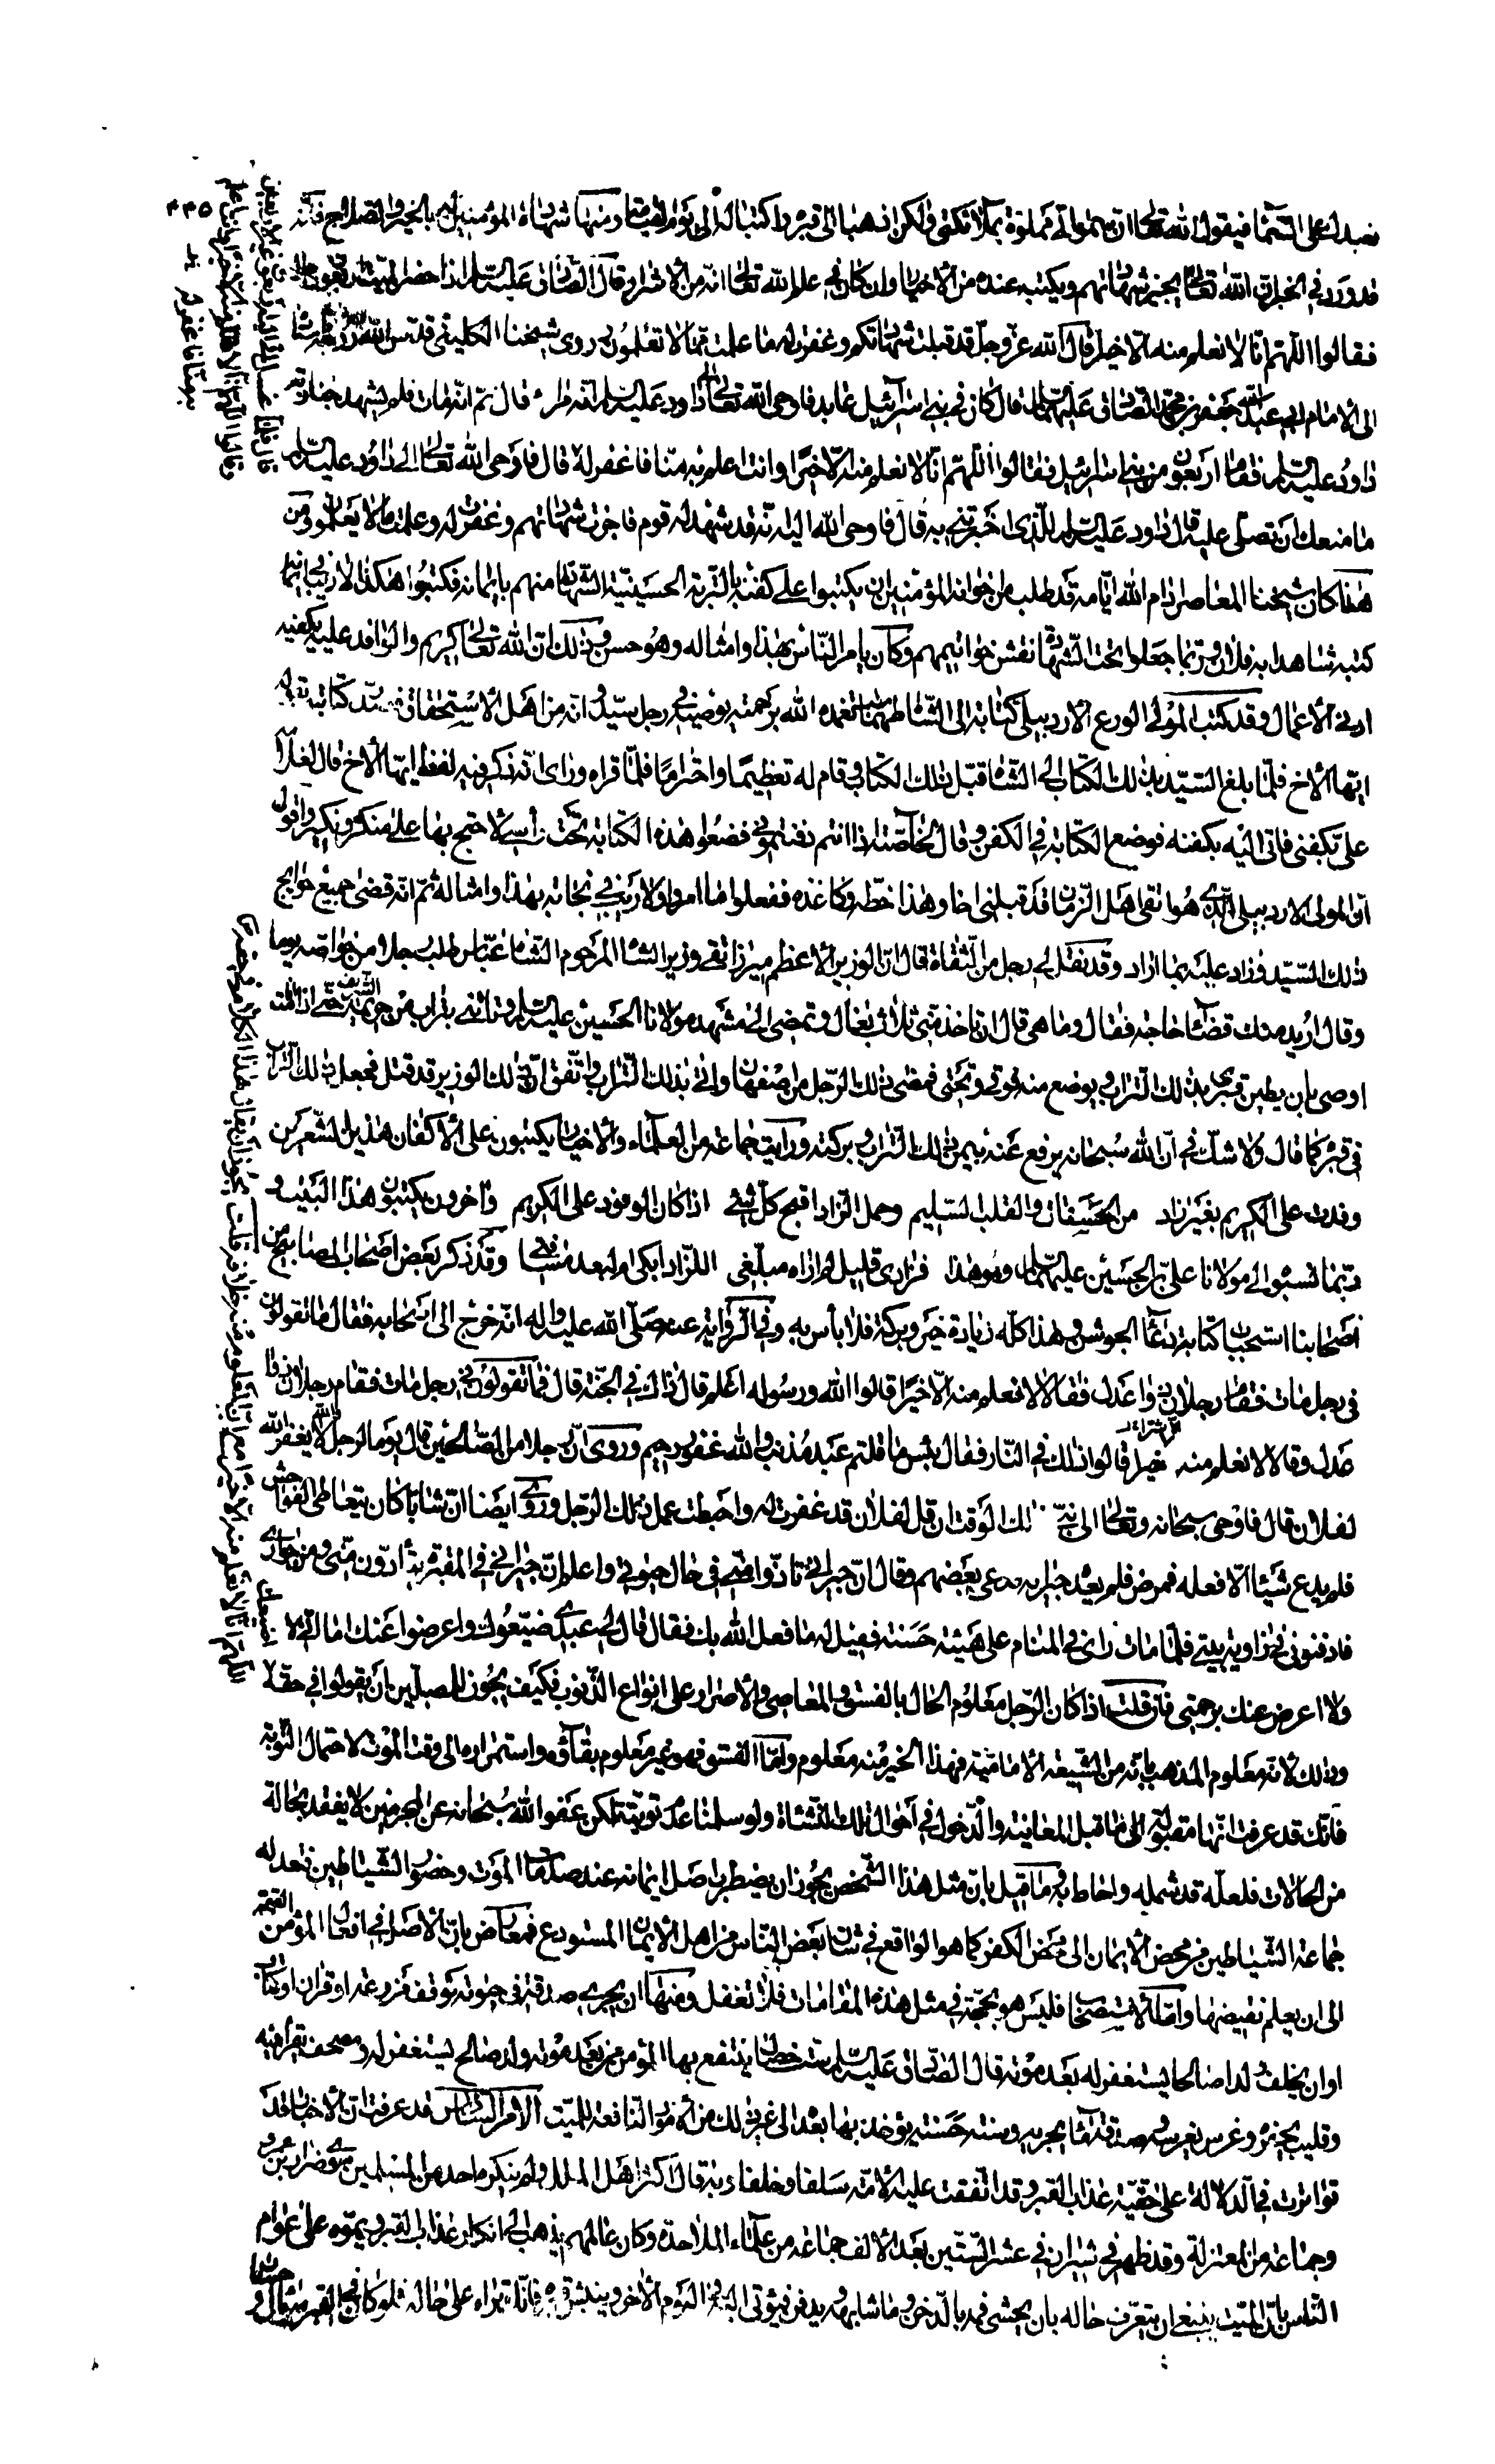 نعبدك على السماء فيقول الله تعالى ان سمواتي مملوة بملائكتي ولكن اذهبا الى قبره واكتبا له الى يوم القيامة ومنها شهادة المؤمنين له بالخير والصلاح فانه
قد ورد في الخبر ان الله تعالى يجيز شهاداتهم ويكتبه عنده من الأخيار وان كان في علم الله تعالى انه من الأشرار وقال الصادق عليه السلام اذا حضر الميت اربعون رجلا
فقالوا اللهم انا لا نعلم منه الا خيرا قال الله عز وجل قد قبلت شهاداتكم وغفرت له ما علمت مما لا تعلمون روى شيخنا الكليني قدس الله روحه باسناده
الى الامام ابي عبد الله جعفر بن محمد الصادق عليهما السلام قال كان في بني اسرائيل عابد فاوحى الله تعالى الى داود عليه السلام انه مراء قال ثم انه مات فلم يشهد جنازته
داود عليه السلام فقام اربعون من بني اسرائيل فقالوا اللهم انا لا نعلم منه الا خيرا وانت اعلم به منا فاغفر له قال فاوحى الله تعالى الى داود عليه السلام
ما منعك ان تصلي عليه قال داود عليه السلام للذي اخبرتني به قال فاوحى الله اليه انه قد شهد له قوم فاجزت شهاداتهم وغفرت له وعلمت ما لا يعلمون ومن
هذا كان شيخنا المعاصر ادام الله ايامه قد طلب من اخوانه المؤمنين ان يكتبوا على كفنه بالتربة الحسينية الشهادة منهم بايمانه فكتبوا هكذا لا ريب في ايمانه
كتبه شاهدا به فلان وربما جعلوا تحت الشهادة نقش خواتيمهم وكان يامر الناس بهذا وامثاله وهو حسن وذلك ان الله تعالى كريم والوافد عليه يكفيه
ادنى الأعمال وقد كتب المولى الورع الاردبيلي كتابة الى الشاه طهماسب تغمده الله برحمته يوصيه في رجل سيد وانه من اهل الاستحقاق
ايها الأخ فلما بلغ السيد بذلك الكتاب الى الشاه قبل ذلك الكتاب وقام له تعظيما واحتراما فلما قراه وراى انه ذكر فيه لفظ ايها الأخ قال لغلامه
علي بكفني فاتى اليه بكفنه فوضع الكتابة في الكفن وقال لخاصته اذا انتم دفنتموني فضعوا هذه الكتابة تحت راسي لاحتج بها على منكر ونكير واقول
ان المولى الاردبيلي الذي هو اتقى اهل الزمان قد قبلني اخا وهذا خطه وكاغذه ففعلوا ما امر ولا ريب في نجاته بهذا وامثاله ثم انه قضى جميع حوايج
ذلك السيد وزاد عليه بما اراد وقد نقل لي رجل من الثقاة قال ان الوزير الأعظم ميرزا تقي وزير الشاه المرحوم الشاه عباس طلب رجلا من خواصه يوما
وقال اريد منك قضاء حاجة فقال وما هي قال ان تاخذ مني ثلاث بغال وتمضي الى مشهد مولانا الحسين عليه السلام وتاتيني بتراب من حريمه الشريف حتى اذا مت
اوصي بان يطين قبري بذلك التراب ويوضع منه فوقي وتحتي فمضى ذلك الرجل من اصفهان واتى بذلك التراب واتفق ان ذلك الوزير قد قتل فجعل ذلك التراب
في قبره كما قال ولا شك في ان الله سبحانه يرفع عنه بيمن ذلك التراب وبركته ورايت جماعة من العلماء والأخيار يكتبون على الأكفان هذين الشعرين
وفدت على الكريم بغير زاد من الحسنات والقلب السليم وحمل الزاد اقبح كل شيء اذا كان الوفود على الكريم واخرون يكتبون هذا البيت و
ربما نسبوه الى مولانا علي بن الحسين عليهما السلام وهو هذا فزادي قليل لا اراه مبلغي اللزاد ابكي ام لبعد مسافتي وقد ذكر بعض اصحاب المصابيح من
اصحابنا استحباب كتابة دعاء الجوشن وهذا كله زيادة خير وبركة فلا باس به وفي الرواية عنه صلى الله عليه واله انه خرج الى اصحابه فقال ما تقولون
في رجل مات فقام رجلان ذوا عدل فقالا لا نعلم منه الا خيرا قالوا الله ورسوله اعلم قال ذاك في الجنة قال فما تقولون في رجل مات فقام رجلان ذوا
عدل وقالا لا نعلم منه خيرا قالوا ذلك في النار فقال بئس ما قلتم عبد مذنب والله غفور رحيم وروى ان رجلا من الصالحين قال يوما لرجل لا يغفر الله
لفلان قال فاوحى سبحانه وتعالى الى نبي ذلك الوقت ان قل لفلان قد غفرت له واحبطت عمل ذلك الرجل وروى ايضا ان شابا كان يتعاطى الفواحش
فلم يدع شيئا الا فعله فمرض فلم يعده جيرانه فدعى بعضهم وقال ان جيراني تاذوا مني في حال حيوتي واعلم ان جيراني في المقبرة يتاذون مني ومن جواري
فادفنوني في زاوية بيتي فلما مات رائ في المنام على هيئة حسنة فقيل له ما فعل الله بك فقال قال لي عبدي ضيعوك واعرضوا عنك اما اني لا اضيعك
ولا اعرض عنك برحمتي فان قلت اذا كان الرجل معلوم الحال بالفسق والمعاصي والأصرار على انواع الذنوب فكيف يجوز للمصلين ان يقولوا في حقه
وذلك لأنه معلوم المذهب بانه من الشيعة الأمامية فهذا الخير منه معلوم واما الفسق فهو غير معلوم بقاؤه واستمراره الى وقت الموت لاحتمال التوبة
فانك قد عرفت انها مقبولة الى ما قبل المعاينة والدخول في احوال تلك النشاة ولو سلمنا عدم توبته لكن عفو الله سبحانه عن المجرمين لا يفقد بحالة
من الحالات فلعله قد شمله واحاط به وما قيل بان مثل هذا الشخص يجوز ان يضطرب اصل ايمانه عند صدمات الموت وحضور الشياطين فتعدله
جماعة الشياطين من محض الأيمان الى محض الكفر كما هو الواقع في شان بعض الناس من اهل الأيمان المستودع فمعارض بان الأصل في افعال المؤمن الصحة
الى ان يعلم نقيضها واما الاستصحاب فليس هو بحجة في مثل هذه المقامات فلا تغفل ومنها ان يجري صدقة في حيوته كوقف
او ان يخلف ولدا صالحا يستغفر له بعد موته قال الصادق عليه السلام ست خصال ينتفع بها المؤمن من بعد موته ولد صالح يستغفر له ومصحف يقرا فيه
وقليب يحفره وغرس يغرسه وصدقة ماء يجريه وسنة حسنة يؤخذ بها بعده الى غير ذلك من الأمور النافعة للميت الأمر السادس قد عرفت ان الأخبار قد
تواترت في الدلالة على حقية عذاب القبر وقد اتفقت عليه الأمة سلفا وخلفا وبه قال اكثر اهل الملل ولم ينكره احد من المسلمين سوى ضرار بن عمرو
وجماعة من المعتزلة وقد ظهر في شيراز في عشر الستين بعد الألف جماعة من علماء الملاحدة وكان عالمهم يذهب الى انكار عذاب القبر ويموه على عوام
الناس بان الميت ينبغي ان يتعرف حاله بان يحشى فمه بالدخن وما شابهه ويدفن فيؤتى اليه في اليوم الأخر وينبش قبره فانا نراه على حاله فلو كان في القبر سؤال و
حساب
٢٣٥